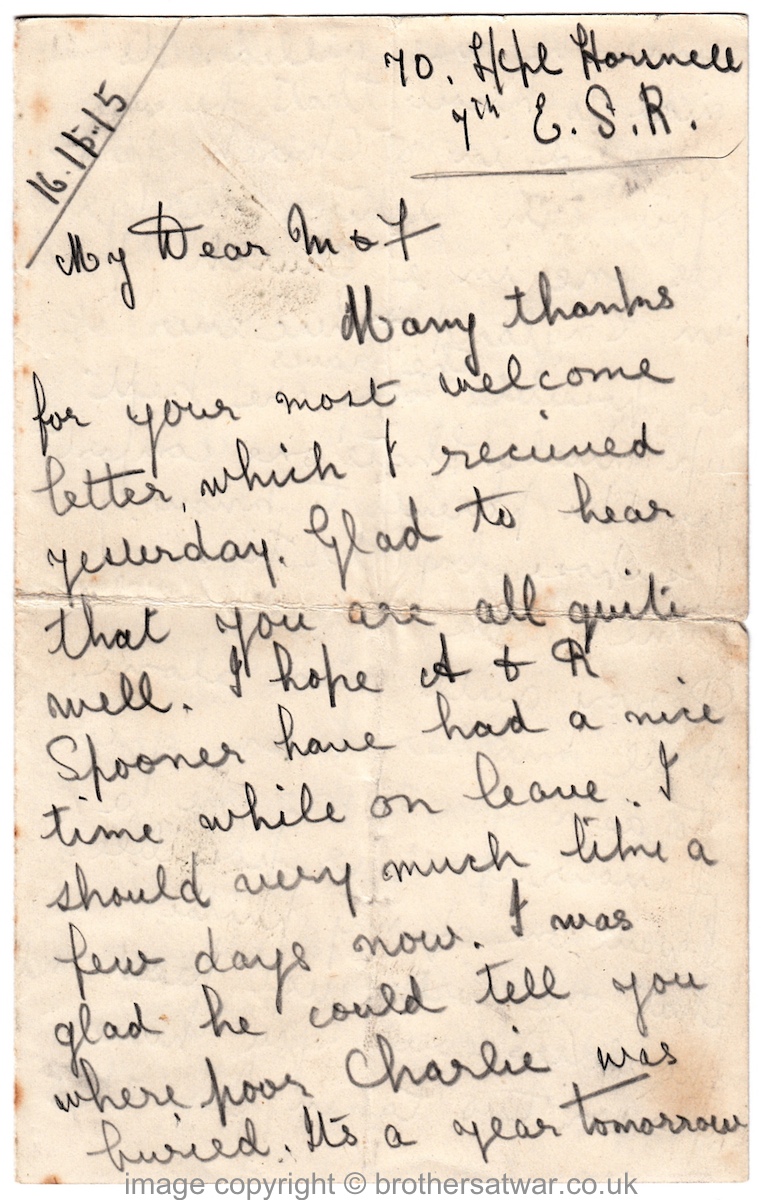 70. L/cpl Hornell
7th E.S.R.
16.15.15
My Dear M & F
Many thanks
for your most welcome
letter, which I recieved
yesterday. Glad to hear
that you are all quite
well. I hope A & R
Spooner have had a nice
time while on leave. I
should very much like a
few days now. I was
glad he could tell you
where poor Charlie was
buried. Its a year tomorrow
image copyright © brothersatwar.co.uk